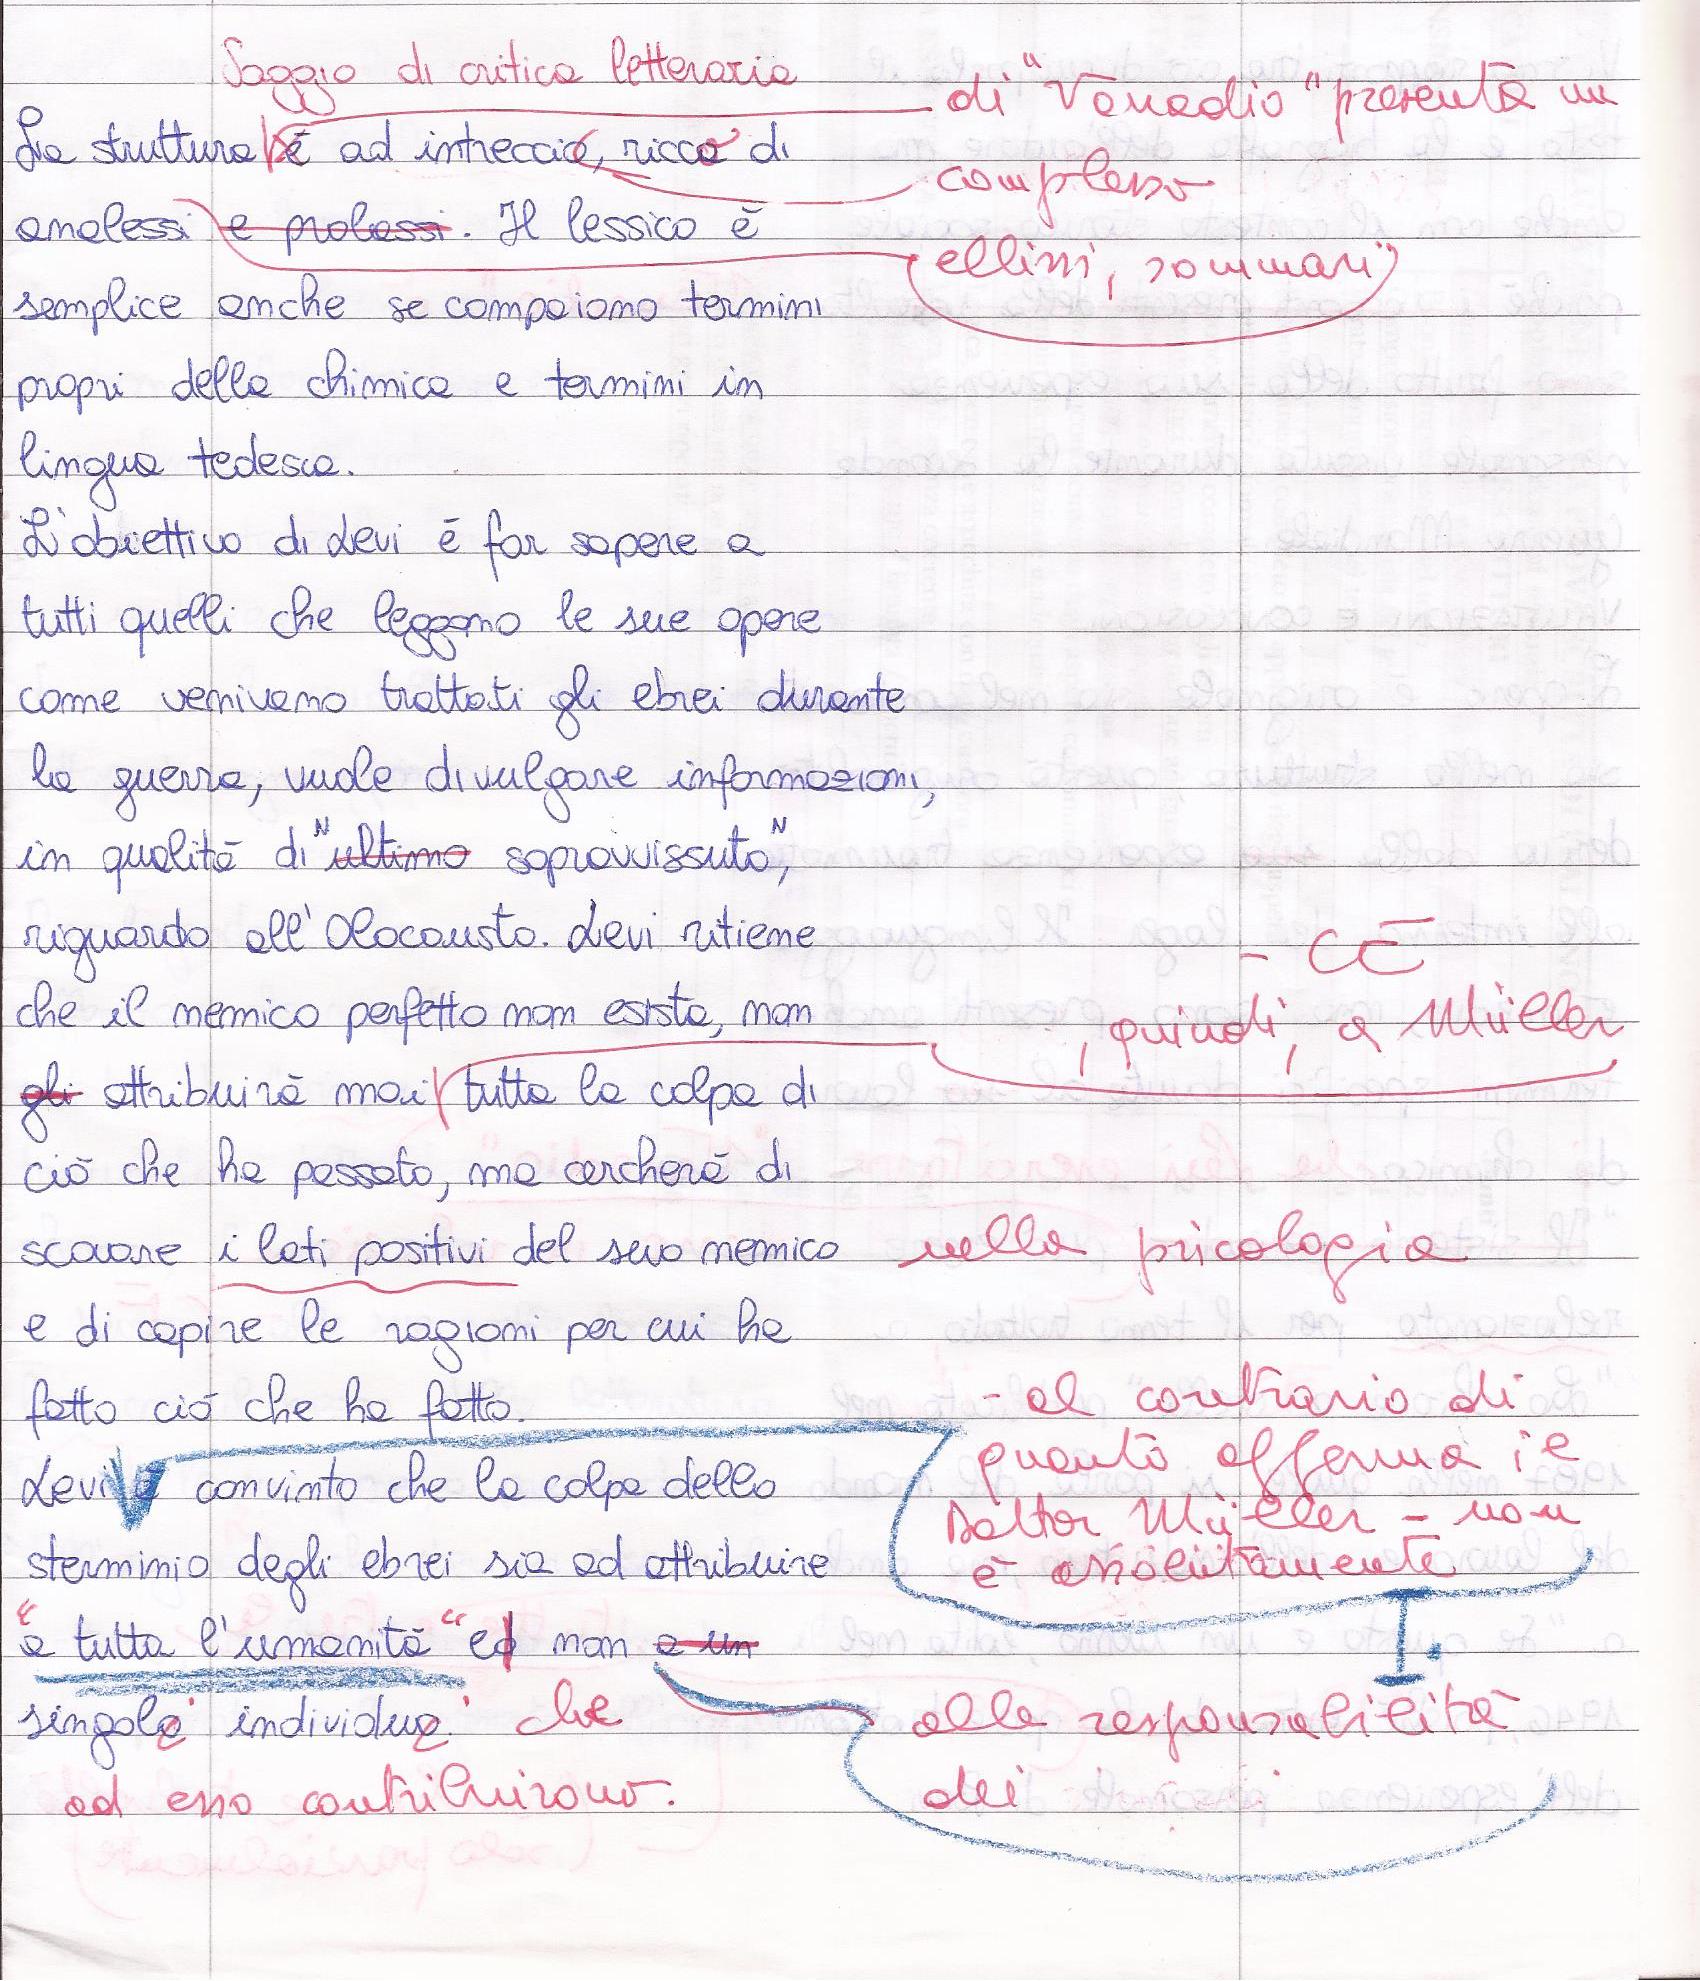 Saggio di critica letteraria
di "Vanadio" presenta un
La struttura è ad intreccio, ricca di
complesso
analessi e prolessi. Il lessico è
ellissi, sommari
semplice anche se compaiono termini
propri della chimica e termini in
lingua tedesca.
L'obiettivo di Levi è far sapere a
tutti quelli che leggono le sue opere
come venivano trattati gli ebrei durante
la guerra, vuole divulgare informazioni,
in qualità di "ultimo sopravvissuto",
riguardo all'Olocausto. Levi ritiene
- CE
che il nemico perfetto non esista, non
, quindi, a Müller
gli attribuirà mai tutta la colpa di
ciò che ha passato, ma cercherà di
scavare i lati positivi del suo nemico
nella psicologia
e di capire le ragioni per cui ha
fatto ciò che ha fatto.
- al contrario di
quanto afferma il
Levi è convinto che la colpa dello
Doktor Müller - non
è assolutamente
sterminio degli ebrei sia ad attribuire
"a tutta l'umanità" ed non a un
singoli individui che
alla responsabilità
ad esso contribuirono.
dei